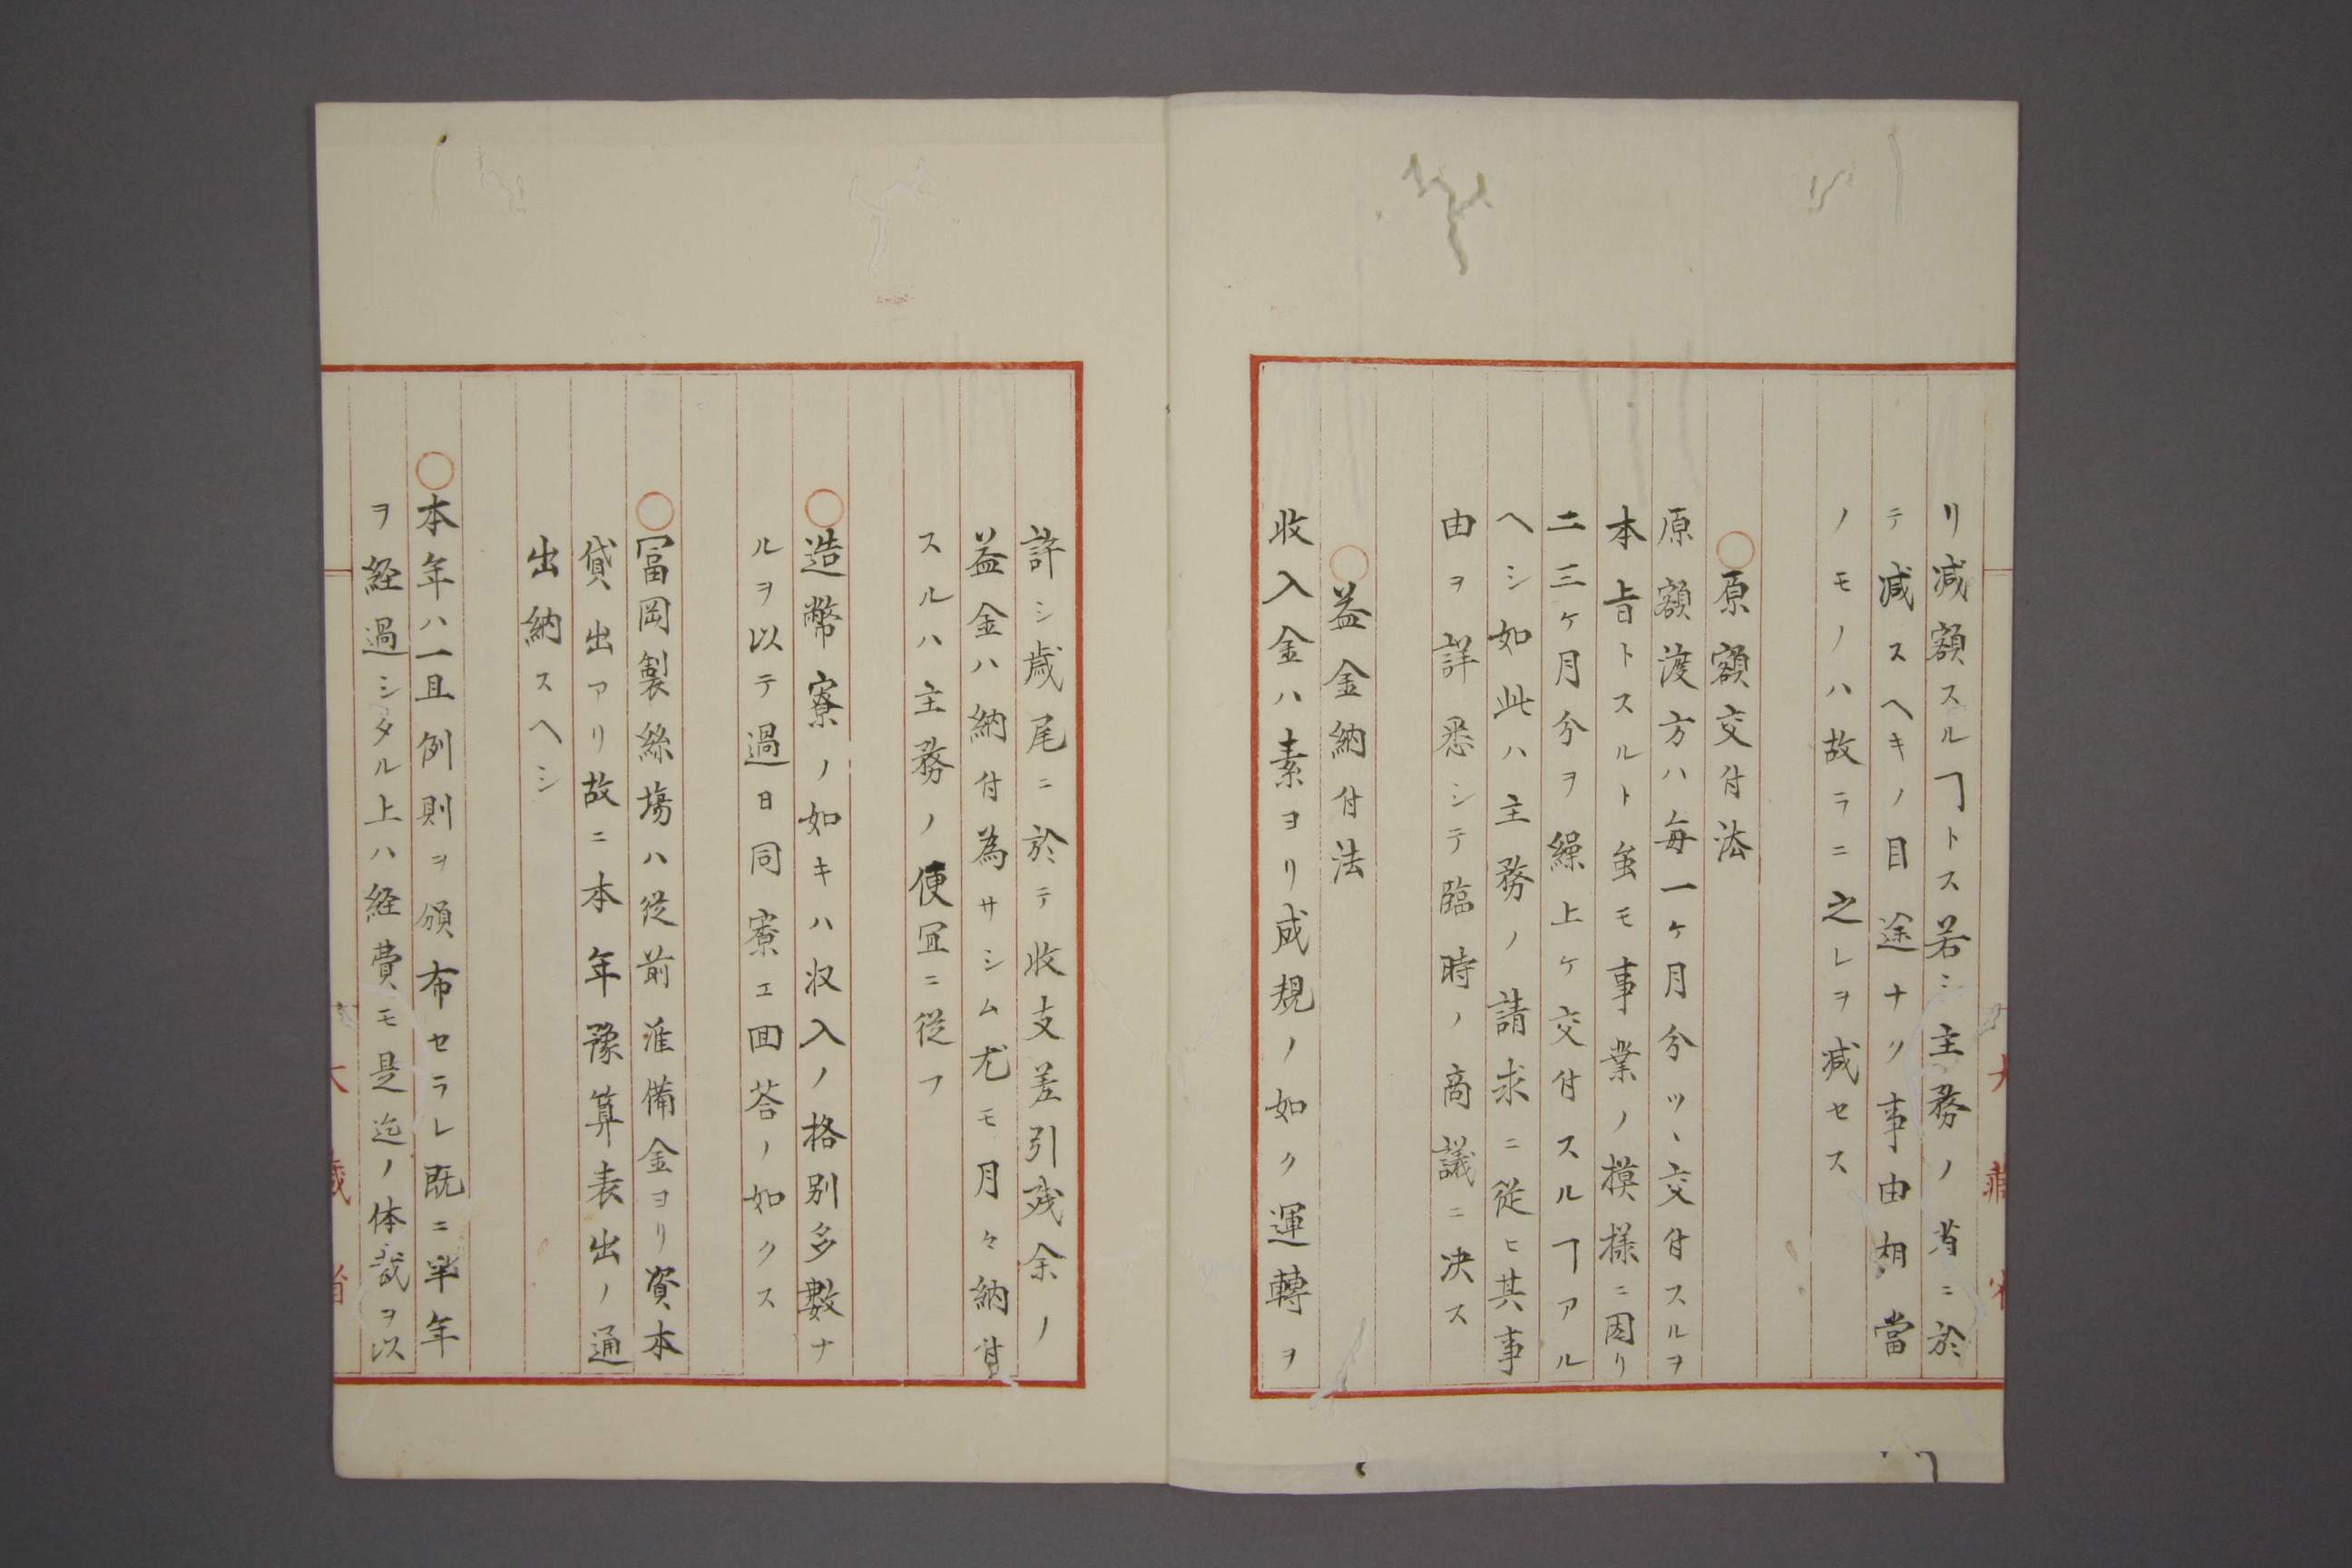 リ減額スルヿトス若シ主務ノ省ニ於
テ減スヘキノ目途ナリ事由相當
ノモノハ故ラニ之レヲ減セス
○原額交付法
原額渡方ハ毎一ヶ月分ツヽ交付スルヲ
本旨トスルト虽モ事業ノ摸樣ニ因リ
二三ヶ月分ヲ繰上ケ交付スルヿアル
ヘシ如此ハ主務ノ請求ニ從ヒ其事
由ヲ詳悉シテ臨時ノ商議ニ决ス
○益金納付法
收入金ハ素ヨリ成規ノ如ク運轉ヲ
許シ歳尾ニ於テ收支差引残余ノ
益金ハ納付為サシム尤モ月々納付
スルハ主務ノ便冝ニ從フ
○造幣寮ノ如キハ収入ノ格別多數ナ
ルヲ以テ過日同寮エ囬荅ノ如クス
○冨岡製絲塲ハ從前準備金ヨリ資本
貸出アリ故ニ本年豫算表出ノ通
出納スヘシ
○本年ハ一旦例則ヲ頒布セラレ既ニ半年
ヲ経過シタル上ハ経費モ是迄ノ体裁ヲ以
大藏省